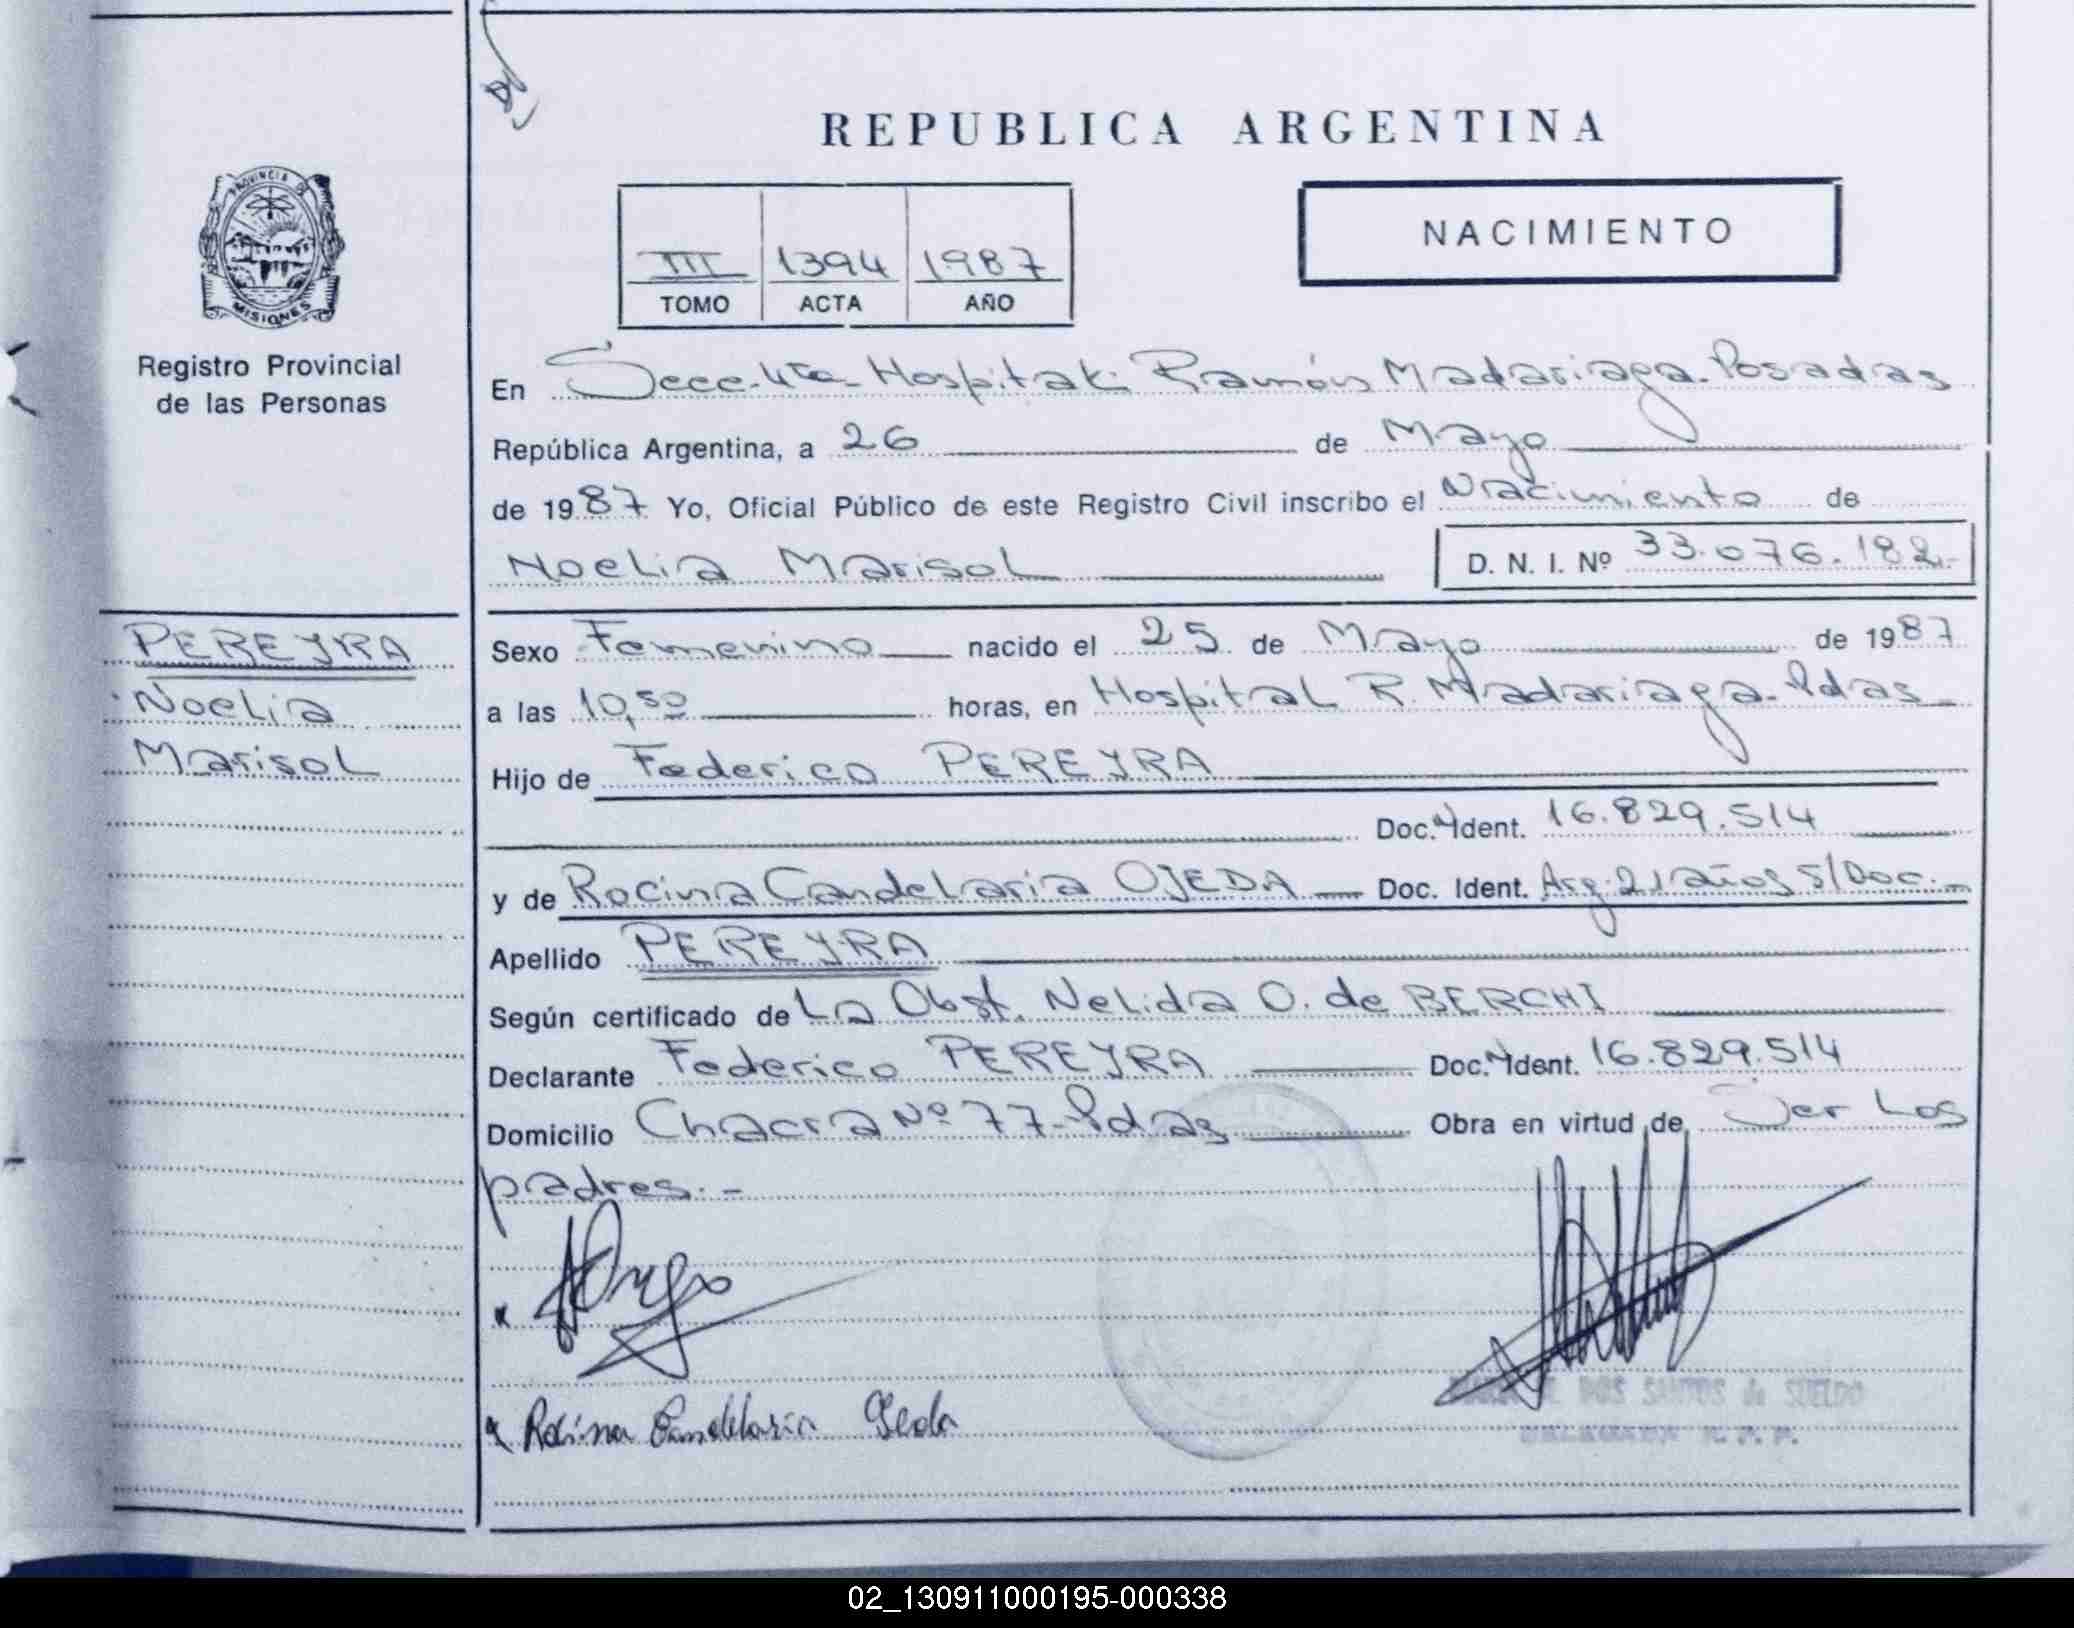 REPUBLICA ARGENTINA
PROVINCIA DE
MISIONES
Registro Provincial
de las Personas
III 1394 1987
TOMO ACTA AÑO
NACIMIENTO
En Secc. 4ta - Hospital Ramón Madariaga - Posadas
República Argentina, a 26 de Mayo
de 1987 Yo, Oficial Público de este Registro Civil inscribo el Nacimiento de
Noelia Marisol D. N. I. Nº 33.076.182.-
PEREYRA
Noelia
Marisol
Sexo Femenino nacido el 25 de Mayo de 1987
a las 10,50 horas, en Hospital R. Madariaga - Pdas
Hijo de Federico PEREYRA
Doc. Ident. 16.829.514
y de Rocina Candelaria OJEDA Doc. Ident. Arg. 21 años s/Doc.-
Apellido PEREYRA
Según certificado de La Obst. Nelida O. de BERCHI
Declarante Federico PEREYRA Doc. Ident. 16.829.514
Domicilio Chacra Nº 77 - Pdas Obra en virtud de Ser Los
padres.-
Rosina Candelaria
DOS SANTOS de SUELDO
02_130911000195-000338